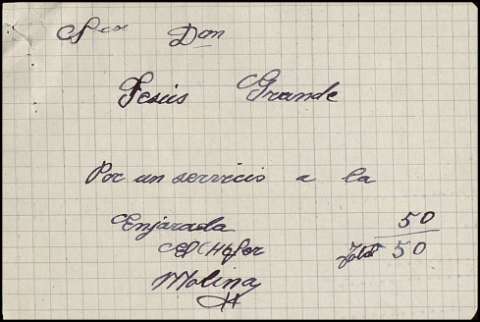 Sr Don
Jesús Grande
Por un servicio a la
Enjarada 50
El CHófer Total 50
Molina